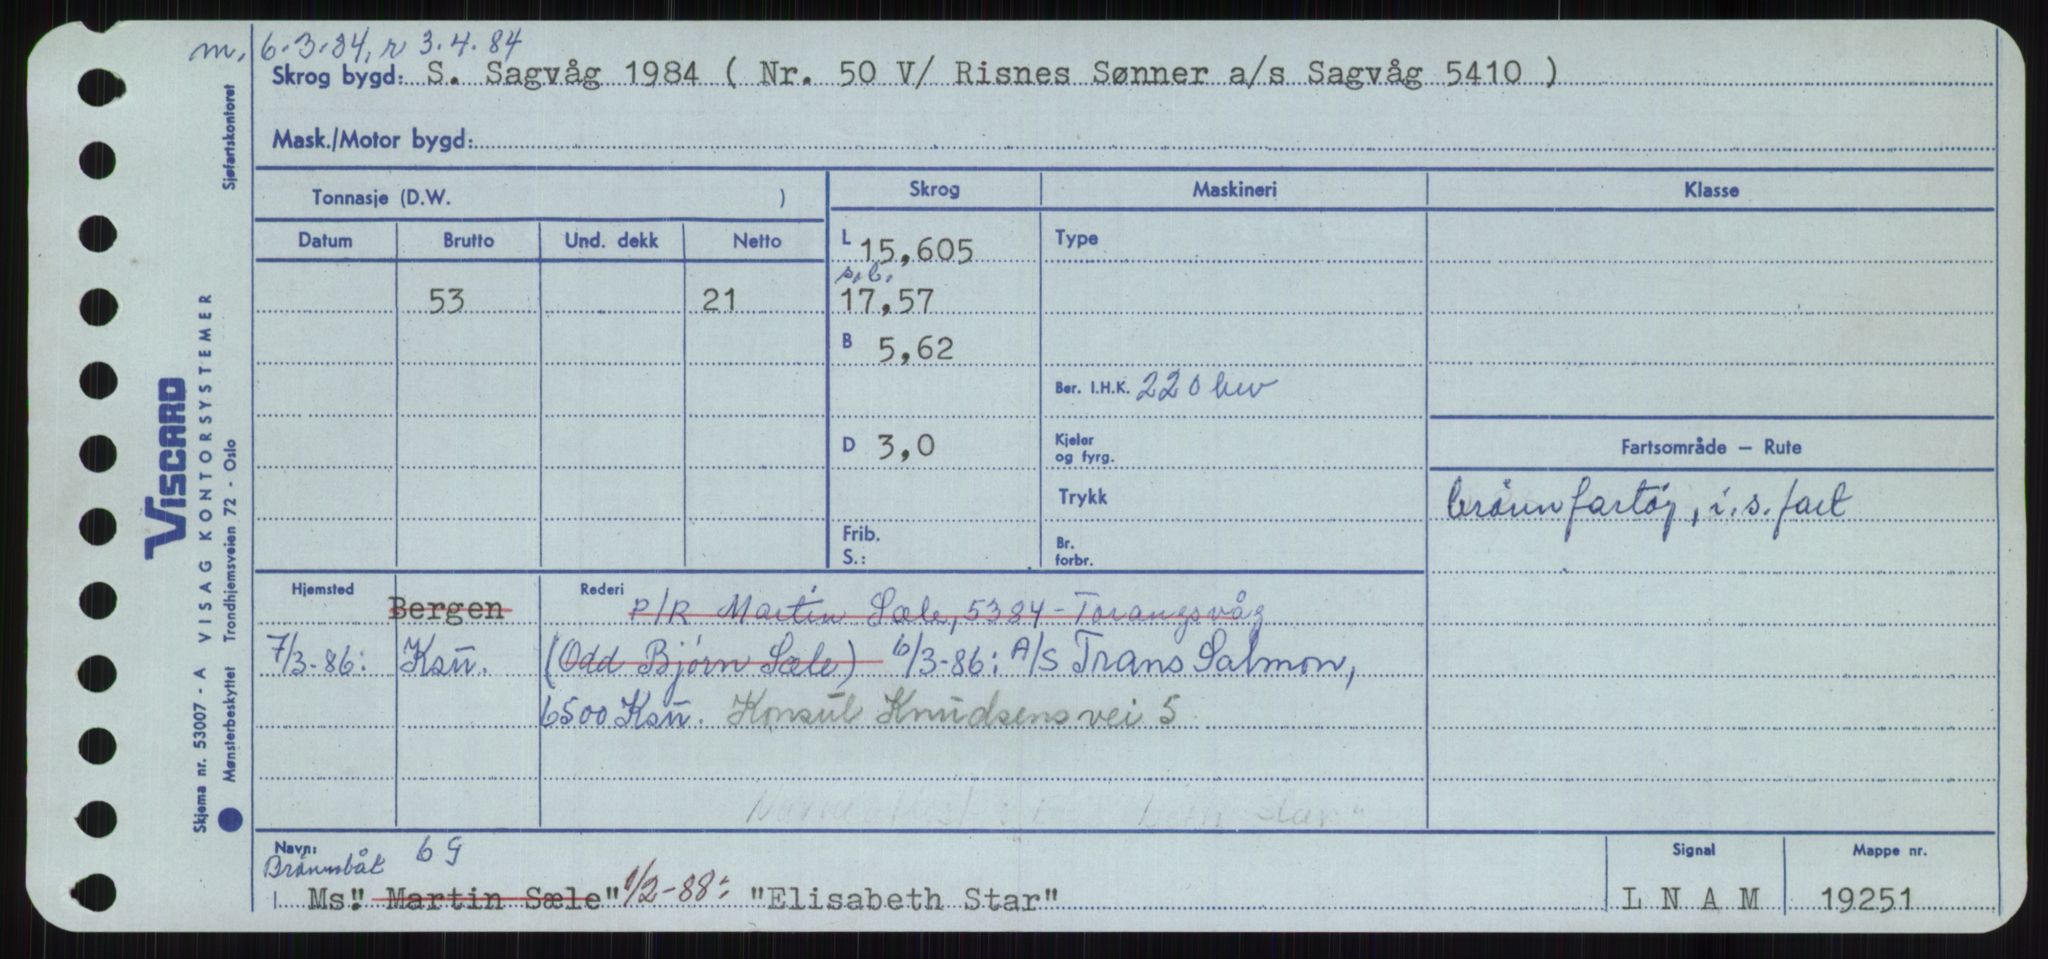 m. 6.3.84, r 3.4.84
Skrog bygd: S. Sagvåg 1984 ( Nr. 50 V/ Risnes Sønner a/s Sagvåg 5410 )
Mask./Motor bygd:
Tonnasje (D.W. )
Skrog
Maskineri
Klasse
Datum
Brutto
Und. dekk
Netto
L 15,605
Type
s.l.
53
21
17,57
B 5,62
Ber. I.H.K. 220 bev
D 3,0
Kjeler
og fyrg.
Fartsområde — Rute
Trykk
brönnfartöy, i.s.fart
Frib.
S.:
Br.
forbr.
Hjemsted
Bergen
Rederi
P/R Martin Sæle, 5384-Torangsvåg
7/3-86: Ksü.
(Odd Björn Sæle) 6/3-86: A/S Trans Salmon,
6500 Ksü. Konsül Knüdsens vei 5
Star"
Navn:
Brönnbåt 69
Ms." Martin Sæle" 1/2-88: "Elisabeth Star"
Signal
L N A M
Mappe nr.
19251
Sjøfartskontoret
VISCARD
VISAG KONTORSYSTEMER
Skjema nr. 53007 - A
Mønsterbeskyttet Trondhjemsveien 72 - Oslo